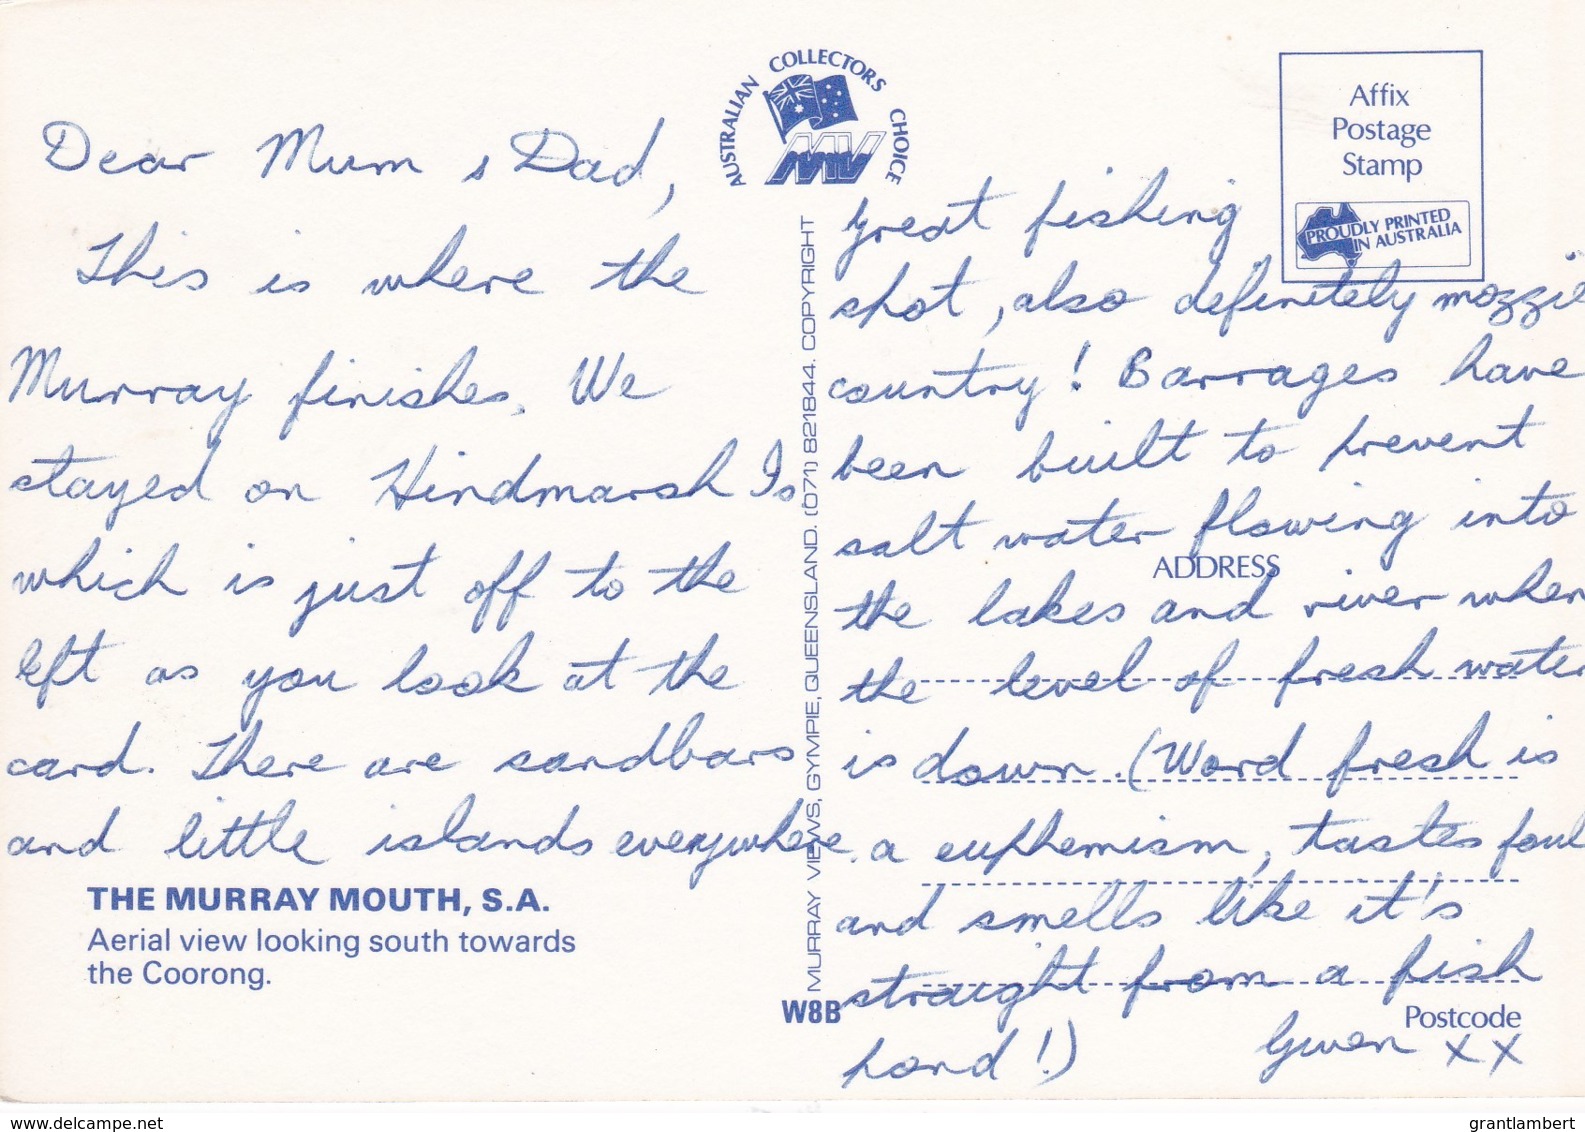 Dear Mum & Dad,
This is where the
Murray finishes. We
stayed on Hindmarsh Is
which is just off to the
left as you look at the
card. There are sandbars
and little islands everywhere.
THE MURRAY MOUTH, S.A.
Aerial view looking south towards
the Coorong.
AUSTRALIAN COLLECTORS CHOICE
MV
MURRAY VIEWS, GYMPIE, QUEENSLAND. (071) 821844. COPYRIGHT
W8B
Affix
Postage
Stamp
PROUDLY PRINTED
IN AUSTRALIA
great fishing
shot, also definitely mozzie
country! Barrages have
been built to prevent
salt water flowing into
ADDRESS
the lakes and river when
the level of fresh water
is down. (Word fresh is
a euphemism, tastes foul
and smells like it's
straight from a fish
pond!)
Postcode
Gwen xx
delcampe.net
grantlambert